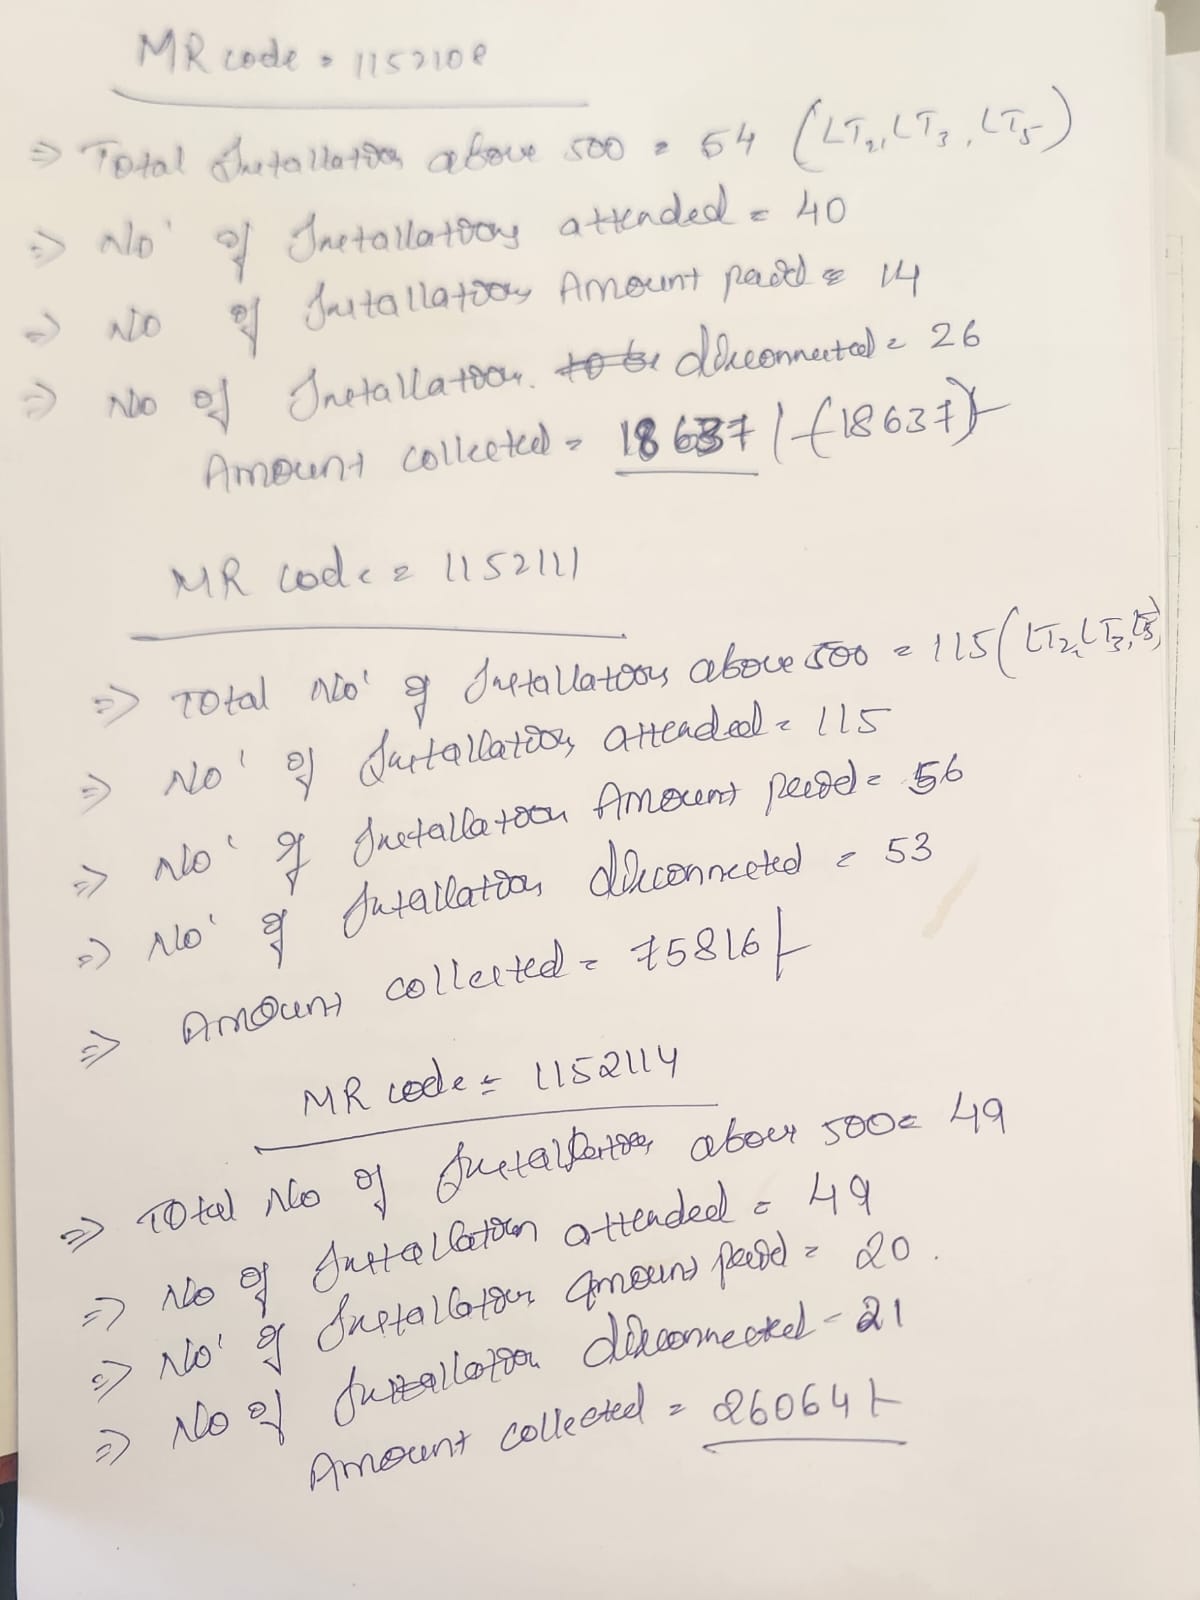 MR code = 1152108
⇒ Total Installation above 500 = 54 (LT2, LT3, LT5)
⇒ No' of Installations attended = 40
⇒ No of Installation Amount paid = 14
⇒ No of Installation. to be disconnected = 26
Amount collected = 18637/- (18637)/-
MR code = 1152111
⇒ Total No' of Installations above 500 = 115 (LT2, LT3, LT5)
⇒ No' of Installation attended = 115
⇒ No' of Installation Amount paid = 56
⇒ No' of Installation disconnected = 53
⇒ Amount collected = 75816/-
MR code = 1152114
⇒ Total No of Installation above 500 = 49
⇒ No of Installation attended = 49
⇒ No' of Installation Amount paid = 20.
⇒ No of Installation disconnected - 21
Amount collected = 26064/-